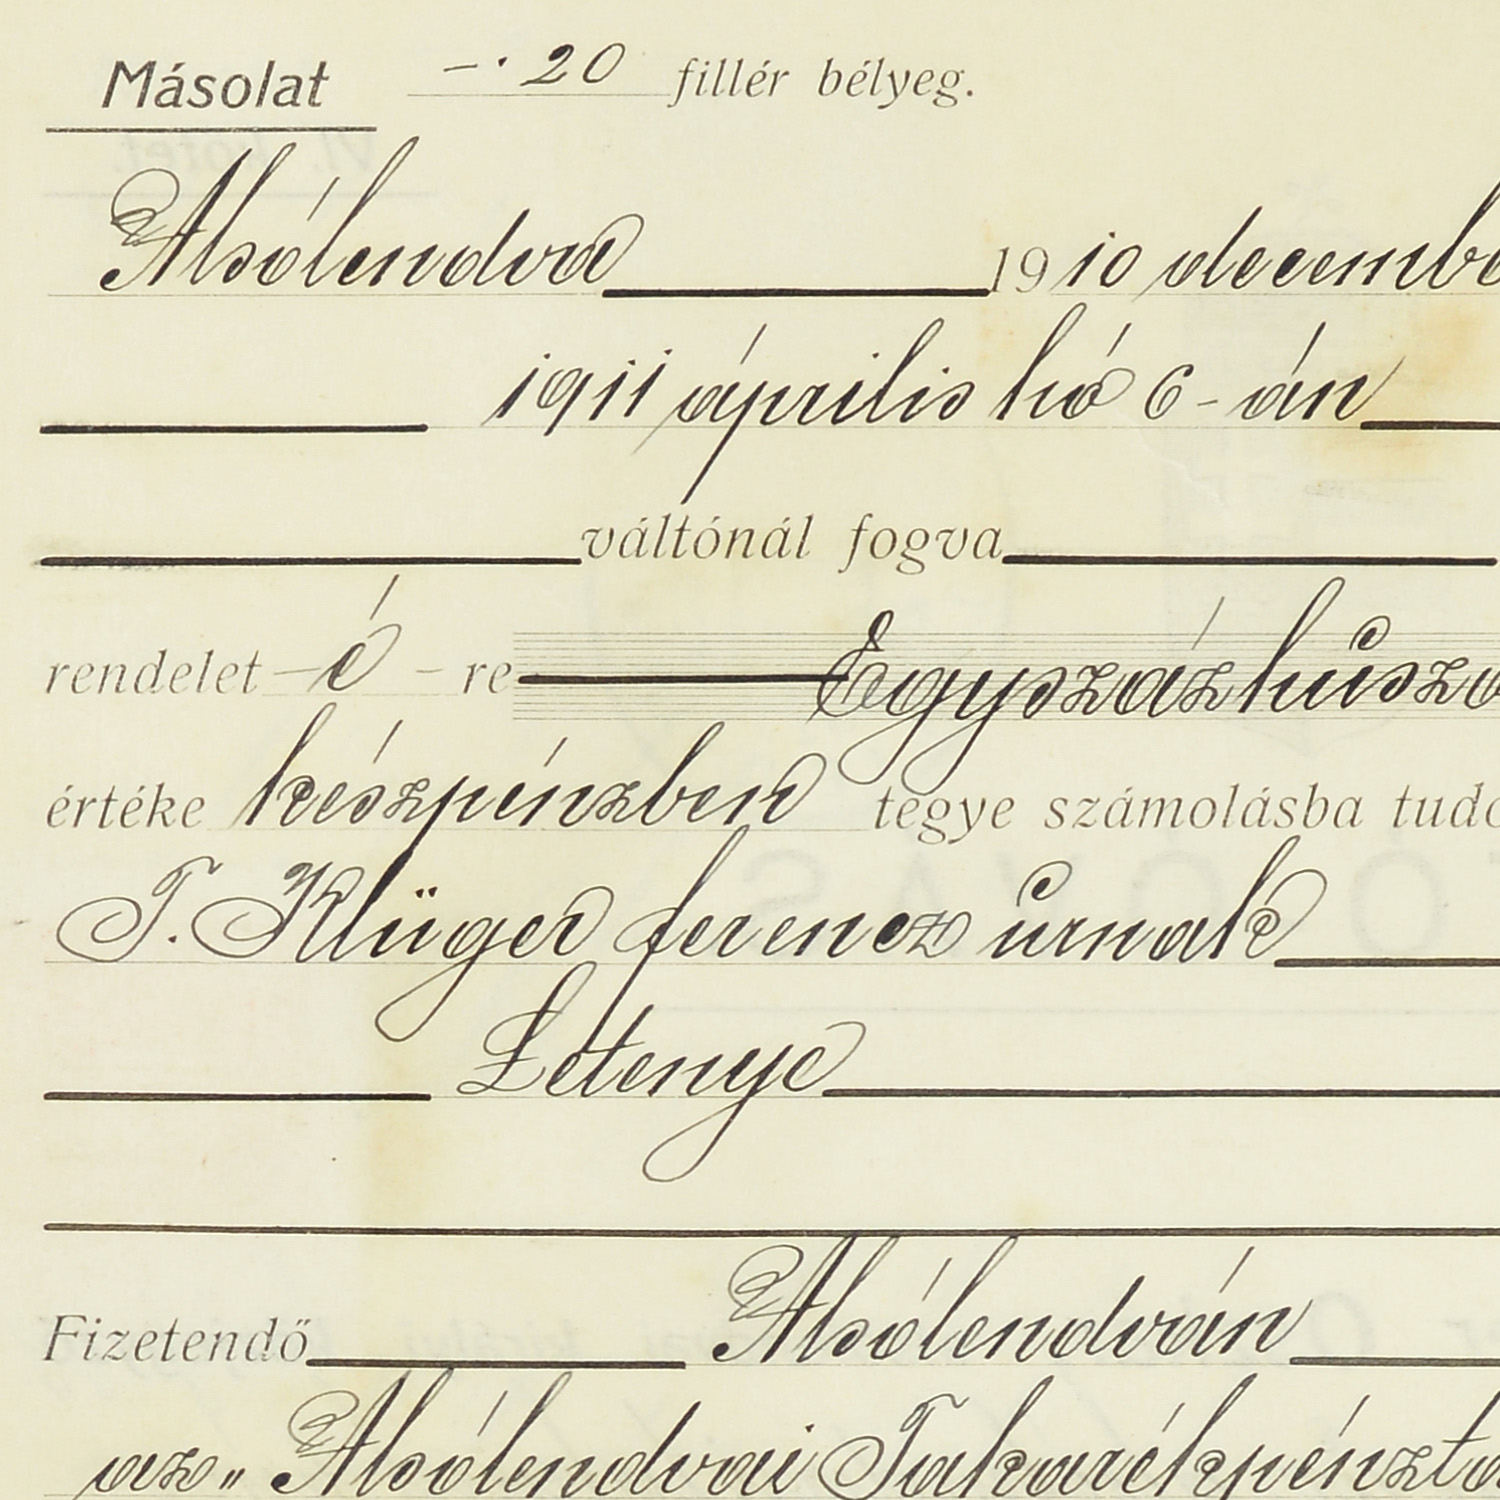 Másolat —·20 fillér bélyeg.
Alsólendva 1910 decembe
1911 április hó 6-án
váltónál fogva
rendelet –é –re Egyszázhúsza
értéke készpénzben tegye számolásba tudo
T. Klüger ferencz úrnak
Letenye
Fizetendő Alsólendván
az „ Alsólendvai Takarékpénztá